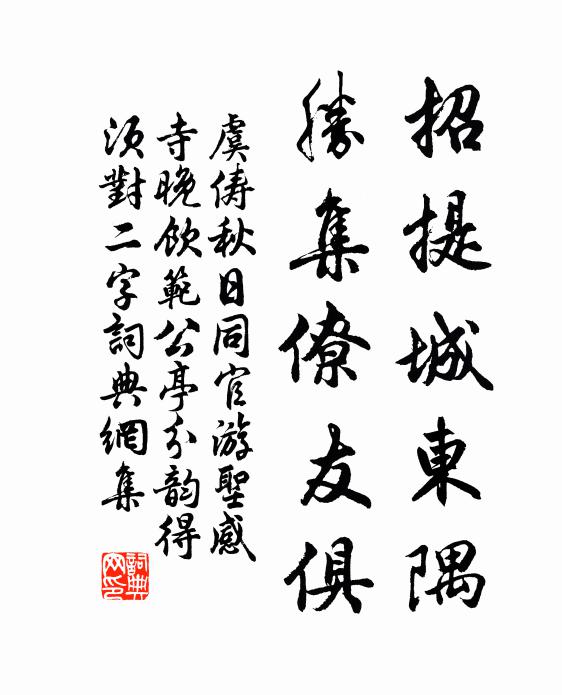 招提城東隅
勝集僚友俱
虞儔秋日同官游聖感
寺晚飲範公亭分韵得
須對二字詞典網集
詞典網印